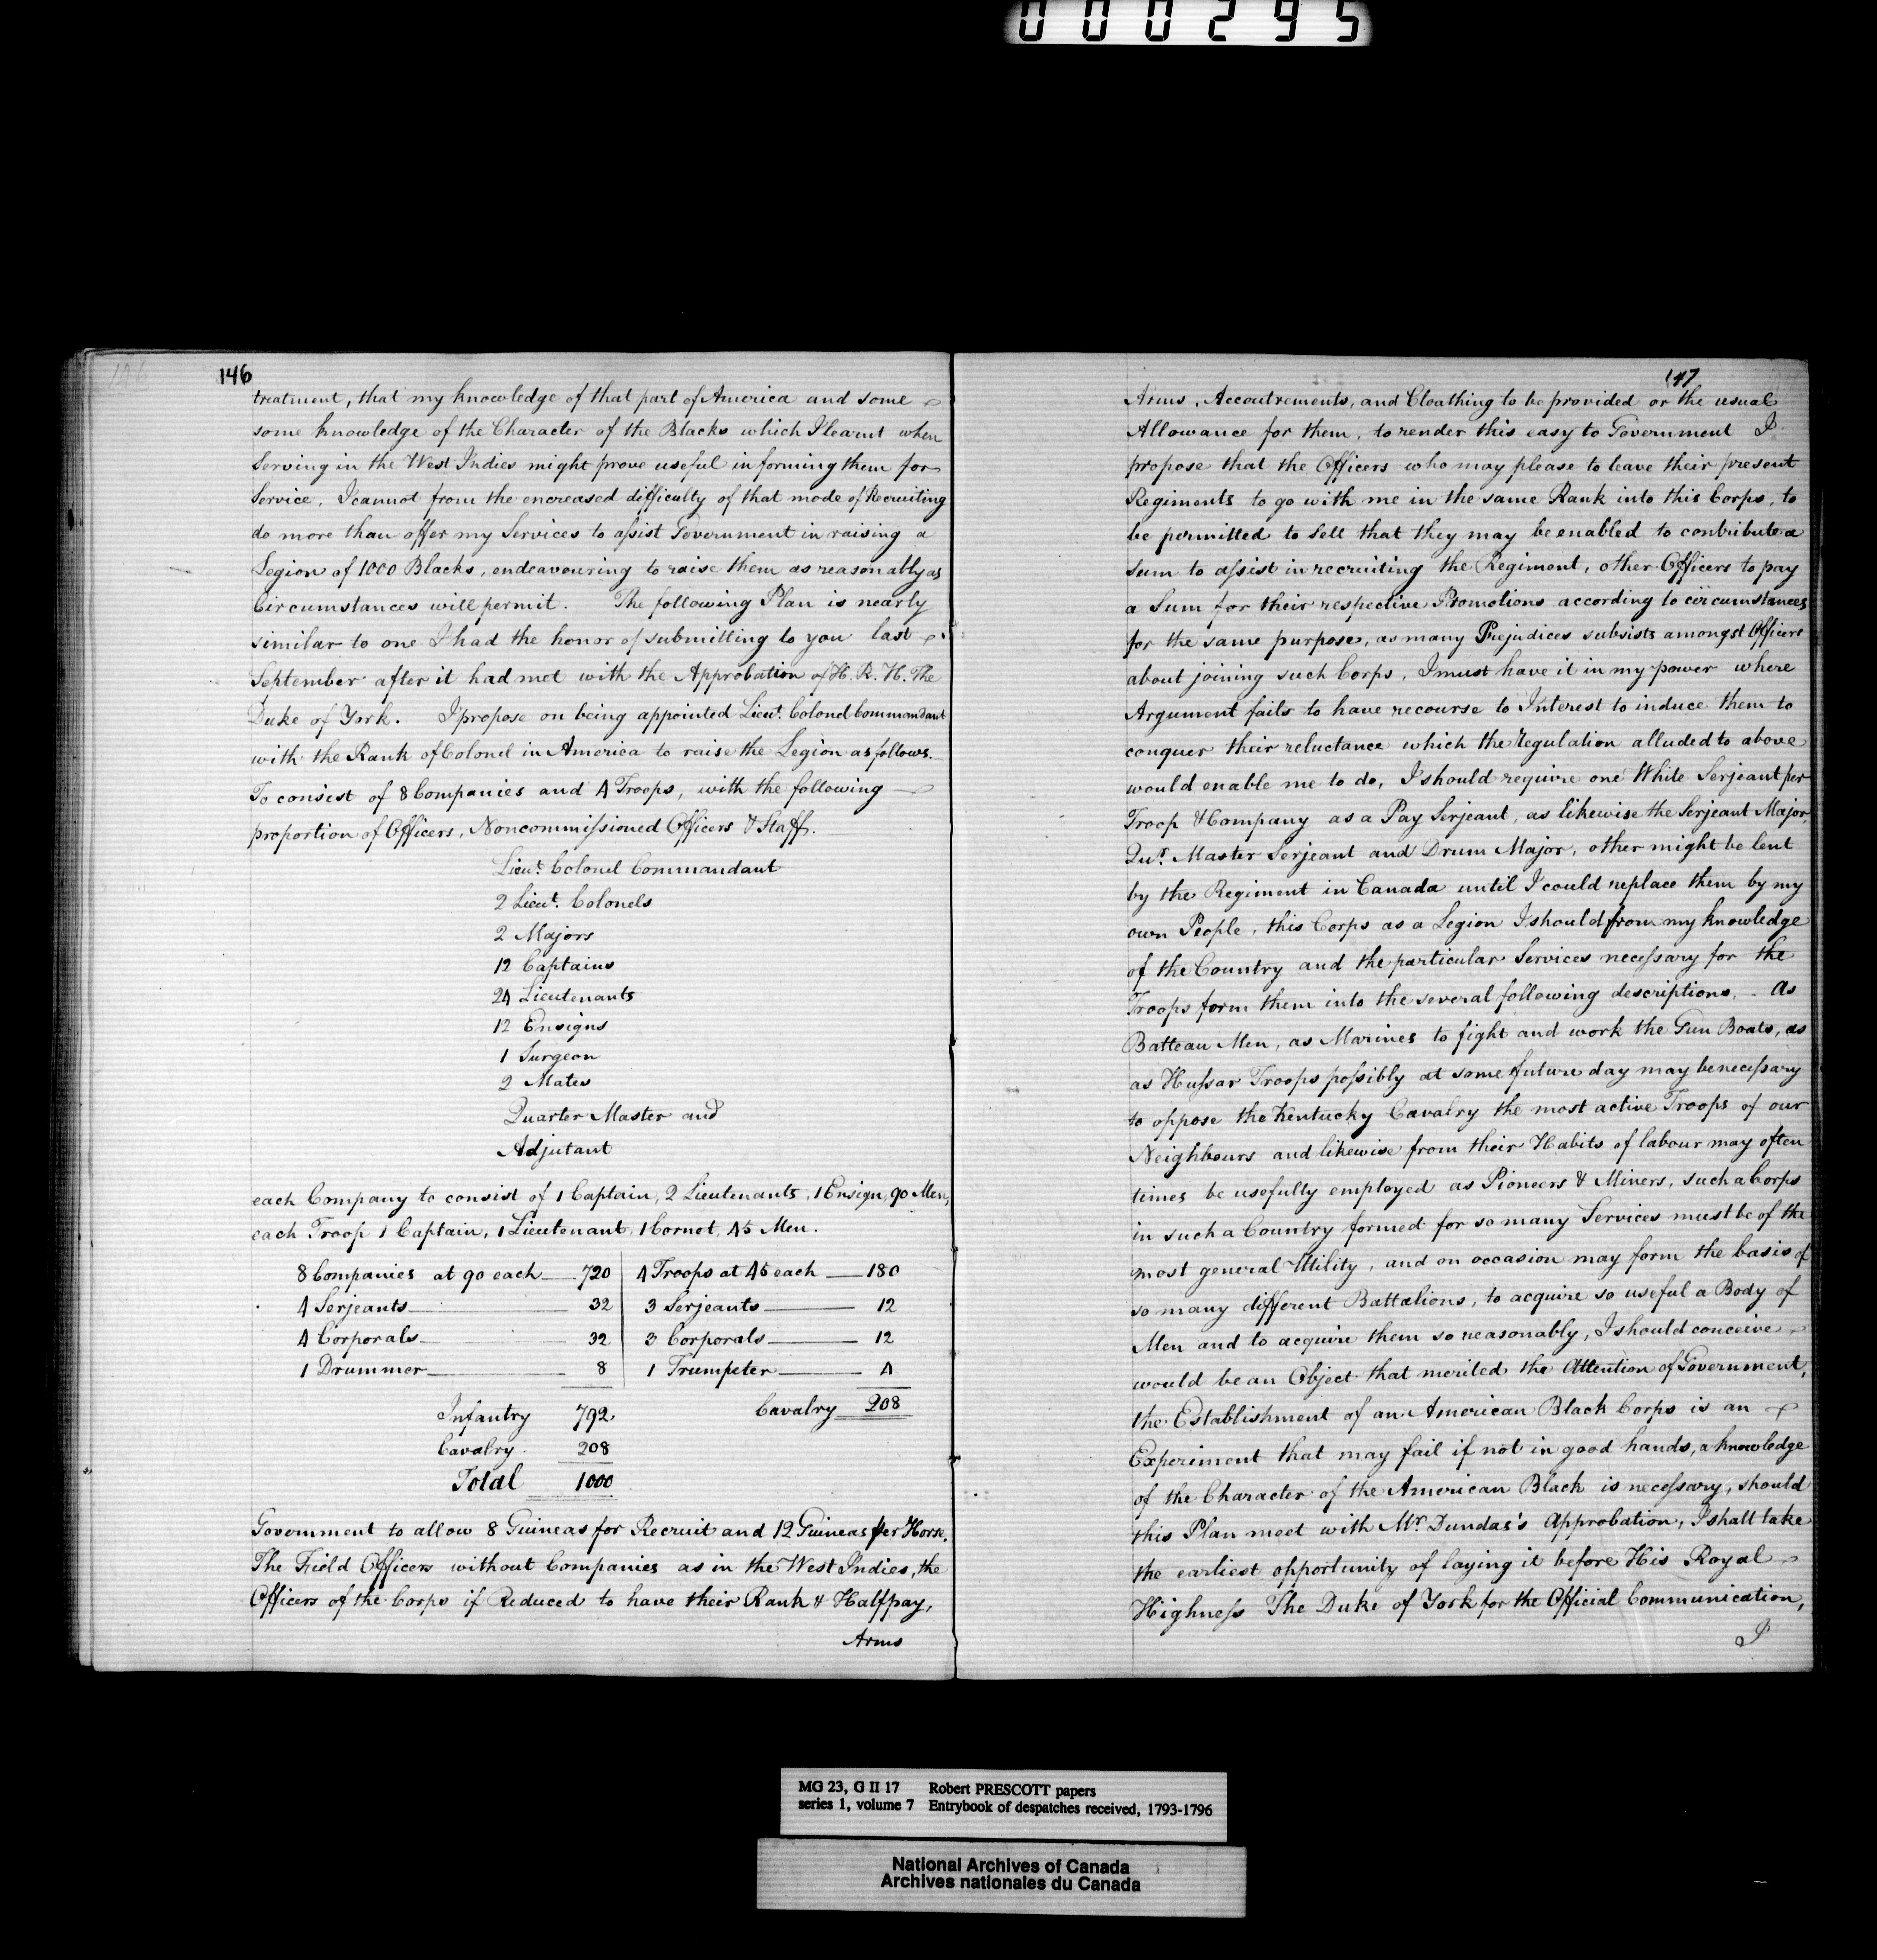 000295
146
treatment, that my knowledge of that part of America and some
some knowledge of the Character of the Blacks which I learnt when
Serving in the West Indies might prove useful in forming them for
Service, I cannot from the encreased difficulty of that mode of Recruiting
do more than offer my Services to assist Government in raising a
Legion of 1000 Blacks, endeavouring to raise them as reasonably as
Circumstances will permit. The following Plan is nearly
similar to one I had the honor of submitting to you last
September after it had met with the Approbation of H. R. H. The
Duke of York. I propose on being appointed Lieut. Colonel Commandant
with the Rank of Colonel in America to raise the Legion as follows.
To consist of 8 Companies and 4 Troops, with the following
proportion of Officers, Noncommissioned Officers & Staff.
Lieut. Colonel Commandant
2 Lieut. Colonels
2 Majors
12 Captains
24 Lieutenants
12 Ensigns
1 Surgeon
2 Mates
Quarter Master and
Adjutant
each Company to consist of 1 Captain, 2 Lieutenants, 1 Ensign, 90 Men,
each Troop 1 Captain, 1 Lieutenant, 1 Cornet, 45 Men.
8 Companies at 90 each — 720 4 Troops at 45 each — 180
4 Serjeants — 32 3 Serjeants — 12
4 Corporals — 32 3 Corporals — 12
1 Drummer — 8 1 Trumpeter — 4
Infantry 792 Cavalry 208
Cavalry 208
Total 1000
Government to allow 8 Guineas for Recruit and 12 Guineas per Horse.
The Field Officers without Companies as in the West Indies, the
Officers of the Corps if Reduced to have their Rank & Halfpay,
Arms
147
Arms, Accoutrements, and Cloathing to be provided or the usual
Allowance for them, to render this easy to Government I
propose that the Officers who may please to leave their present
Regiments to go with me in the same Rank into this Corps, to
be permitted to Sell that they may be enabled to contribute a
Sum to assist in recruiting the Regiment, other Officers to pay
a Sum for their respective Promotions according to circumstances
for the same purpose, as many Prejudices subsists amongst Officers
about joining such Corps, I must have it in my power where
Argument fails to have recourse to Interest to induce them to
conquer their reluctance which the Regulation alluded to above
would enable me to do, I should require one White Serjeant per
Troop & Company as a Pay Serjeant, as likewise the Serjeant Major,
Qur. Master Serjeant and Drum Major, other might be lent
by the Regiment in Canada until I could replace them by my
own People, this Corps as a Legion I should from my knowledge
of the Country and the particular Services necessary for the
Troops form them into the several following descriptions. - As
Batteau Men, as Marines to fight and work the Gun Boats, as
as Hussar Troops possibly at some future day may be necessary
to oppose the Kentucky Cavalry the most active Troops of our
Neighbours and likewise from their Habits of labour may often
times be usefully employed as Pioneers & Miners, such a Corps
in such a Country formed for so many Services must be of the
most general Utility, and on occasion may form the basis of
so many different Battalions, to acquire so useful a Body of
Men and to acquire them so reasonably, I should conceive
would be an Object that merited the Attention of Government,
the Establishment of an American Black Corps is an
Experiment that may fail if not in good hands, a knowledge
of the Character of the American Black is necessary, should
this Plan meet with Mr. Dundas's Approbation, I shall take
the earliest opportunity of laying it before His Royal
Highness The Duke of York for the Official Communication,
I
MG 23, G II 17 Robert PRESCOTT papers
series 1, volume 7 Entrybook of despatches received, 1793-1796
National Archives of Canada
Archives nationales du Canada